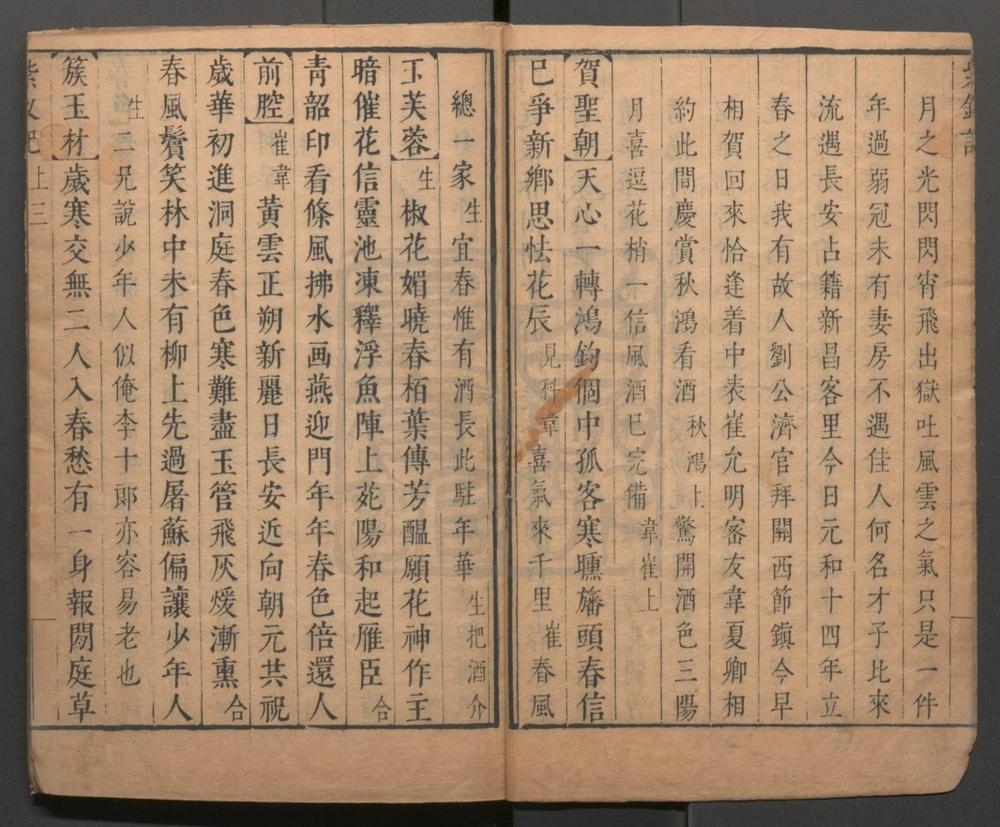 月之光閃閃宵飛出獄吐風雲之氣只是一件
年過弱冠未有妻房不遇佳人何名才子比來
流遇長安占籍新昌客里今日元和十四年立
春之日我有故人劉公濟官拜關西節鎮今早
相賀回來恰逢着中表崔允明密友韋夏卿相
約此間慶賞秋鴻看酒秋鴻上驚開酒色三陽
月喜逗花梢一信風酒已完備韋崔上
【賀聖朝】天心一轉鴻鈞個中孤客寒曛旛頭春信
已爭新鄉思怯花辰見科韋喜氣來千里崔春風
總一家生宜春惟有酒長此駐年華生把酒介
【玉芙蓉】生椒花媚曉春栢葉傳芳醖願花神作主
暗催花信靈池凍釋浮魚陣上苑陽和起雁臣合
青韶印看條風拂水画燕迎門年年春色倍還人
【前腔】崔韋黃雲正朔新麗日長安近向朝元共祝
歲華初進洞庭春色寒難盡玉管飛灰煖漸熏合
春風鬢笑林中未有柳上先過屠蘇偏讓少年人
生二兄說少年人似俺李十郎亦容易老也
【簇玉材】歲寒交無二人入春愁有一身報閑庭草
上三